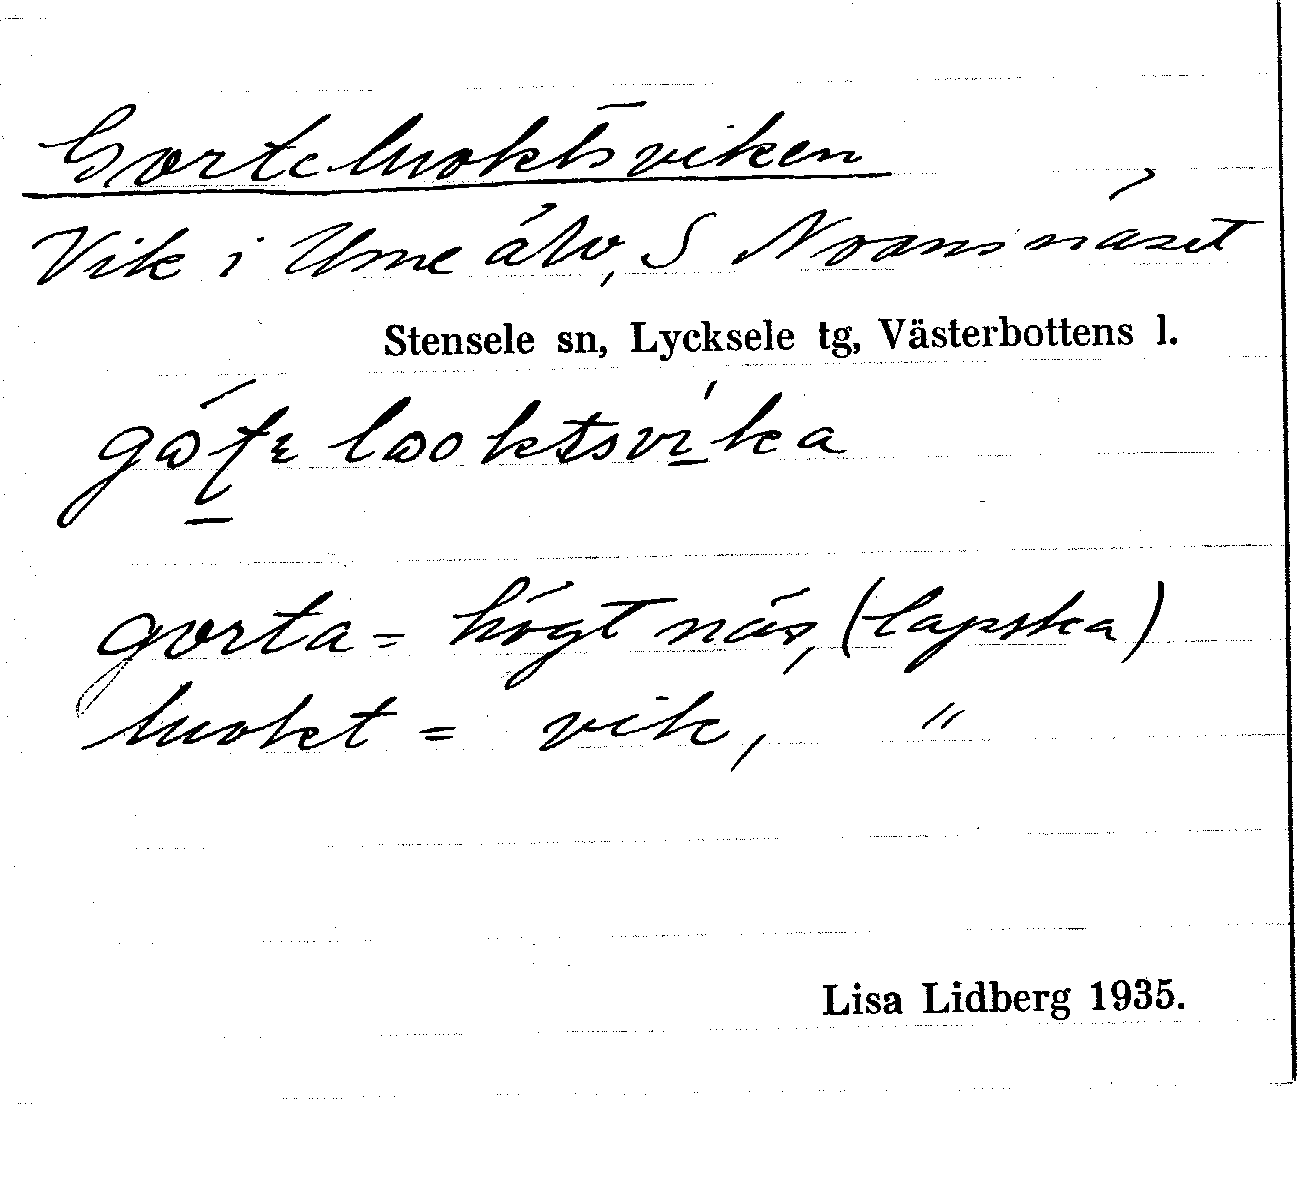 Gorteluoktsviken
Vik i Ume älv, S Normnäset
Stensele sn, Lycksele tg, Västerbottens l.
gorta = högt näs, (lapska)
luokt = vik, "
Lisa Lidberg 1935.